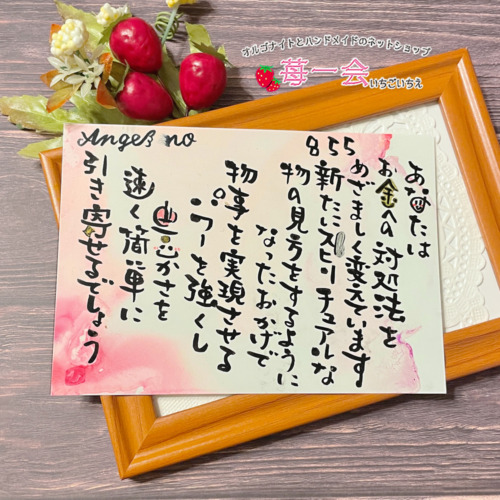 オルゴナイトとハンドメイドのネットショップ
苺一会
いちごいちえ
Angel no
855
あなたは
お金への対処法を
めざましく変えています
新たにスピリチュアルな
物の見方をするように
なったおかげで
物事を実現させる
パワーを強くし
豊かさを
速く簡単に
引き寄せるでしょう